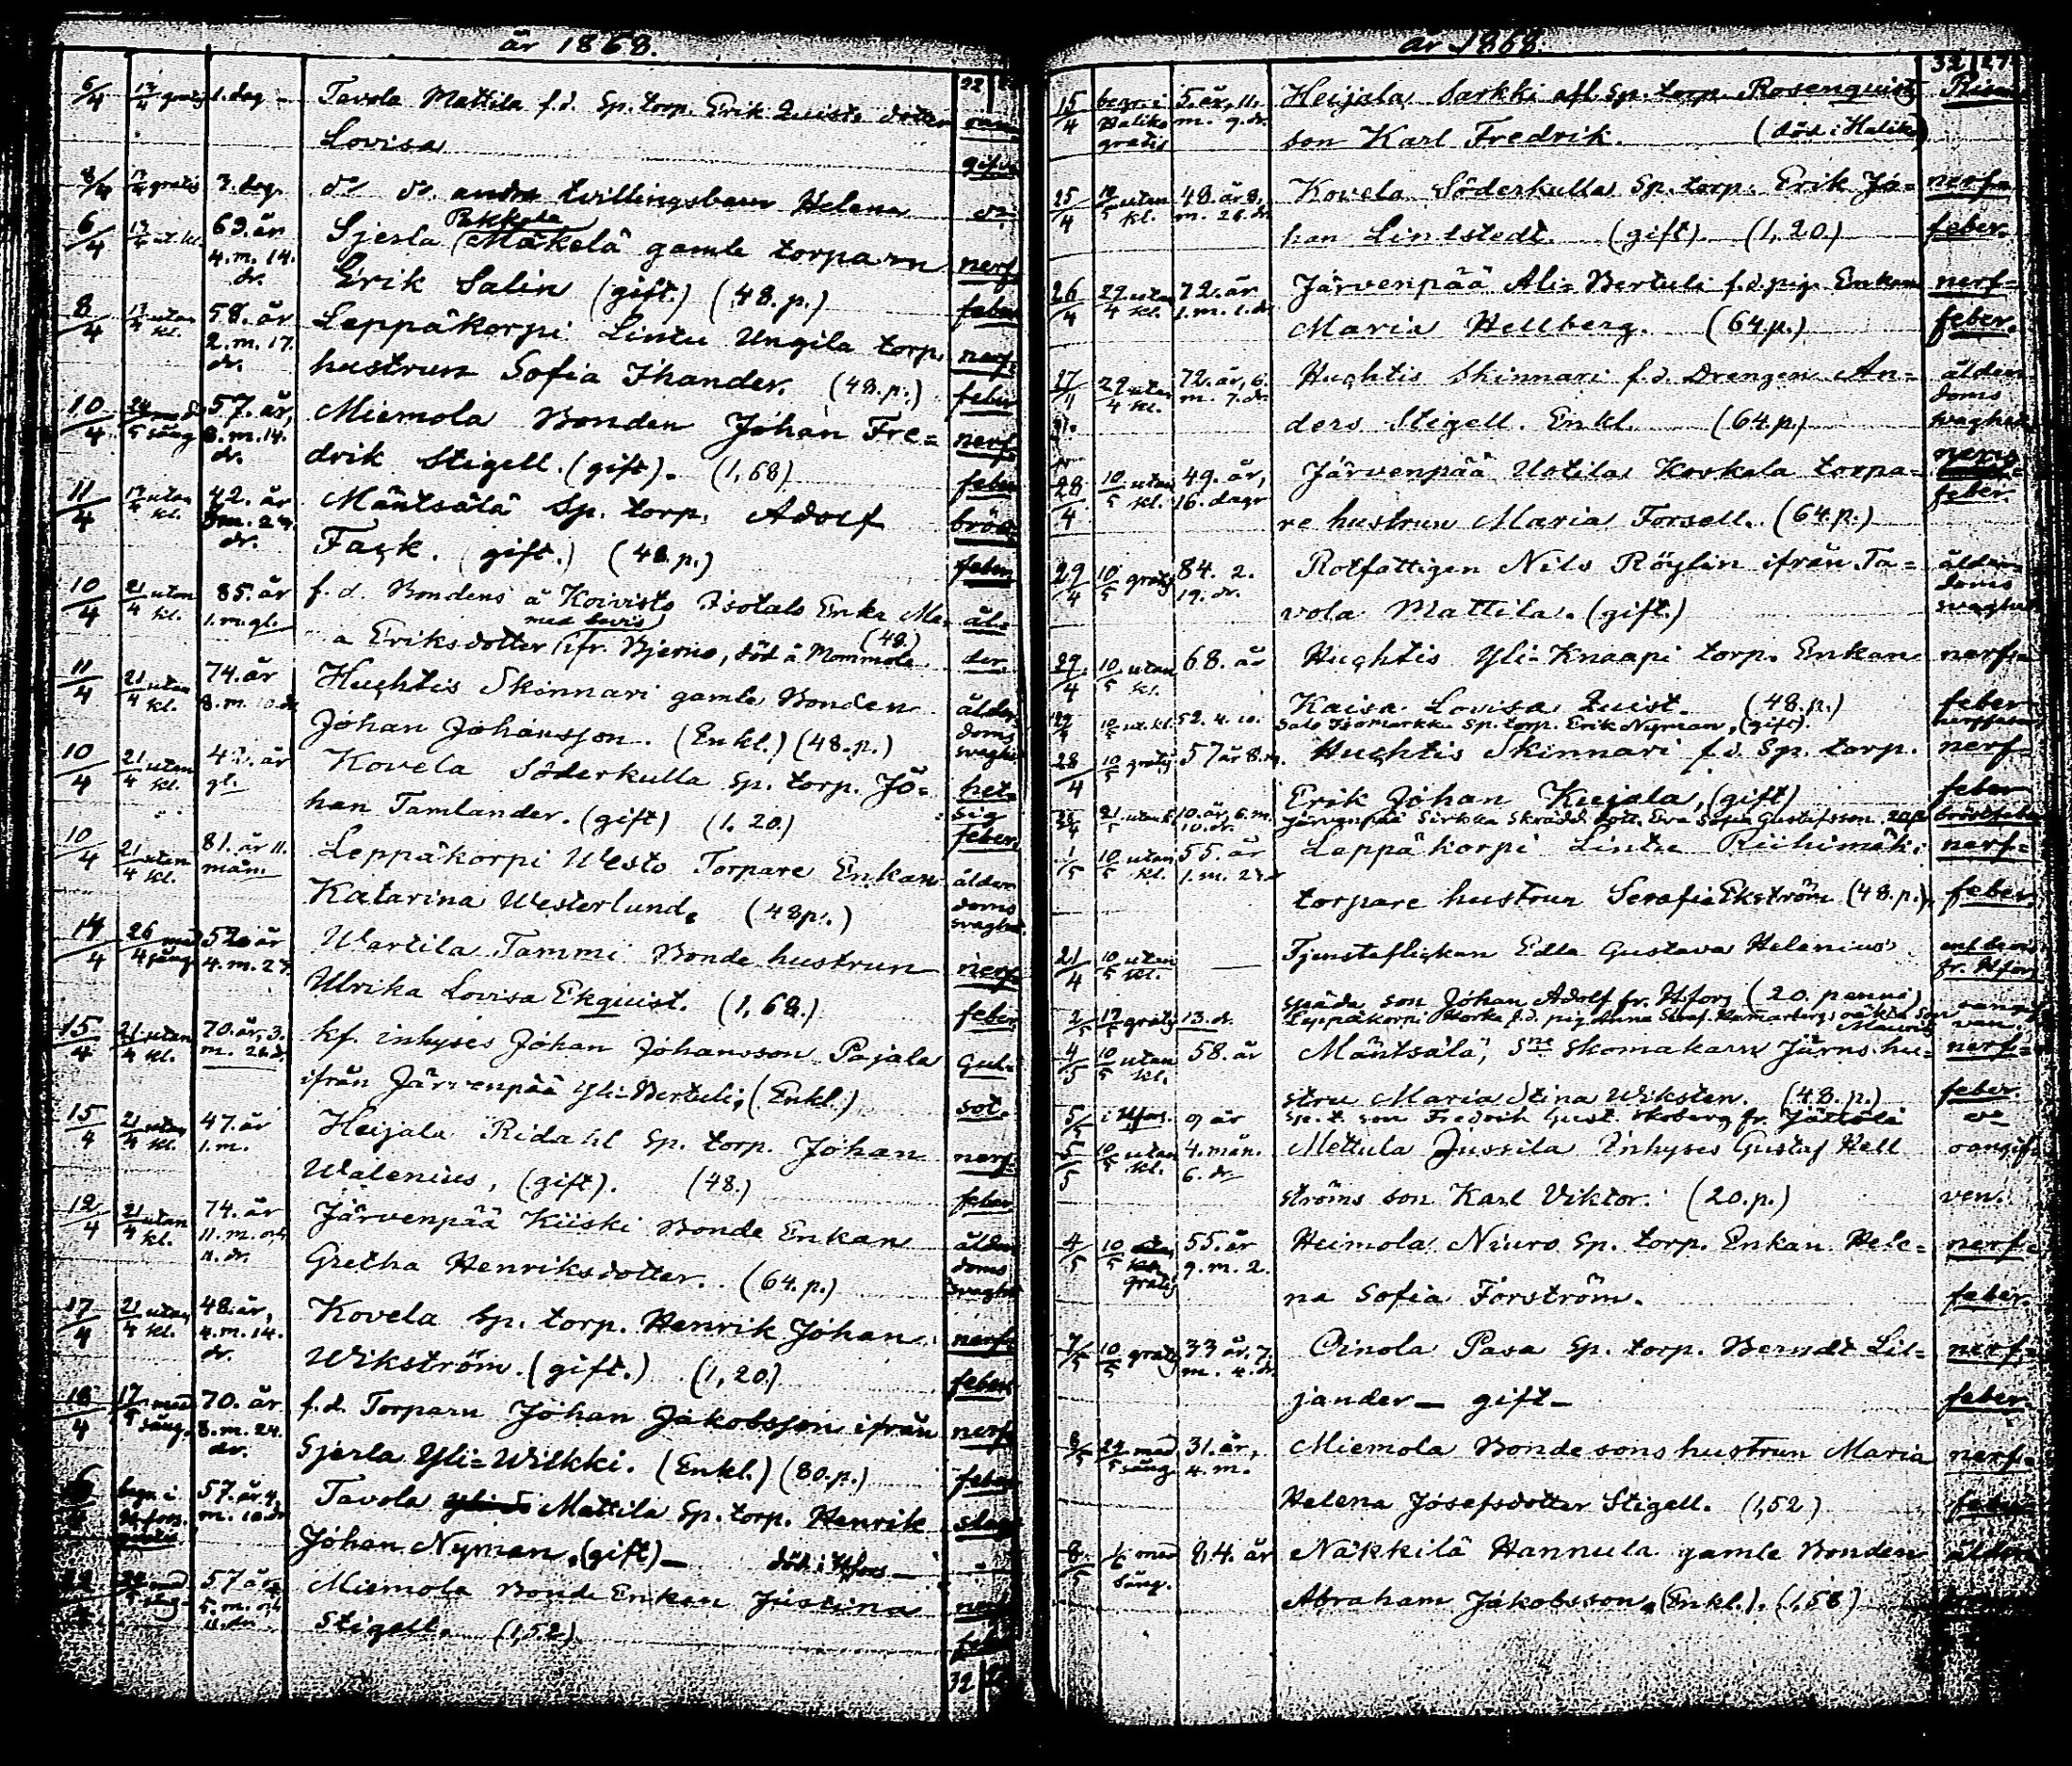 år 1868.
6/4 13/4 gratis 1. dag Tavola Mattila f.d. Sp. torp. Erik Quists dotter
Lovisa
8/4 13/4 gratis 3. dag. do do andra tvillingsbarn Helena do
Pekkola
6/4 13/4 ut. kl. 69. år 4. m. 14. dr. Sjerla (Mäkelä gamle torparn nerf-
Erik Salin (gift.) (48. p.) feber
8/4 13/4 utan kl. 58. år 2. m. 17. dr. Leppäkorpi Lintu Ungila torp. nerf-
hustrun Sofia Ihander. (48. p.) feber
10/4 24/5 med sång 57. år, 8. m. 14. dr. Miemola Bonden Johan Fre= nerf-
drik Stigell. (gift). (1,68) feber
11/4 13/4 utan kl. 42. år dr. Mäntsälä Sp. torp. Adolf bröst
Fack. (gift.) (48. p.) feber
10/4 21/4 utan kl. 85. år 1. m. gl. f. d. Bondens å Koivisto Isotalo Enka Ma- ål-
med bevis (48)
a Eriksdotter ifr. Bjerno, död å Mommola der.
11/4 21/4 utan kl. 74. år 8. m. Huchtis Skinnari gamle Bonden ålder-
Johan Johansson. (Enkl.) (48. p.) doms svaghet
10/4 21/4 utan kl. år gl. Kovela Söderkulla Sp. torp. Jo= het-
han Tamlander. (gift) (1. 20.) sig feber.
10/4 21/4 utan kl. 81. år 11. mån. Leppäkorpi Westo Torpare Enkan ålder
Katarina Westerlund. (48 p.) doms svaghet.
14/4 26/4 med sång 52 år 4. m. 27. Wartila Tammi Bonde hustrun nerf-
Ulrika Lovisa Ekquist. (1,68.) feber
15/4 21/4 utan kl. 70. år, 3. m. 26. dr. kf. inhyses Johan Johansson Pajala Gul-
ifrån Järvenpää Yli-Bertuli, (Enkl.) sot.
15/4 21/4 utan kl. 47. år 1. m. Heijala Ridahl Sp. torp. Johan nerf-
Walenius, (gift). (48.) feber
12/4 21/4 utan kl. 74. år 11. m. och 11. dr. Järvenpää Kiiski Bonde Enkan ålder
Gretha Henriksdotter. (64. p.) doms svaghet
17/4 21/4 utan kl. 48. år, 4. m. 14. dr. Kovela Sp. torp. Henrik Johan nerf-
Wikström. (gift.) (1,20.) feber
18/4 17/5 med sång. 70. år 8. m. 24. dr. f.d. Torparn Johan Jakobsson ifrån nerf-
Sjerla Yli=Wilkki. (Enkl.) (80. p.) feber
begr. i Hfors. 57. år. 4. m. 10. dr. Tavola Mattila Sp. torp. Henrik slag
Johan Nyman, (gift) död i Hfors
57 år 5. m. och 11. dr. Miemola Bonde Enkan Justina nerf-
Stigell. (1,52) feber
32
år 1868.
32 27
15/4 begr. i Haliko gratis 5. år, 11. m. 9. dr. Heijala Sarkki afl. Sp. torp. Rosenquists
son Karl Fredrik. (död i Haliko)
25/4 10/5 utan kl. 48. år 8, m. 26. dr. Kovela Söderkulla Sp. torp. Erik Jo= nerf-
han Lindstedt. (gift). (1,20.) feber.
26/4 29/4 utan kl. 72. år 1. m. 1. dr. Järvenpää Ali-Bertuli f.d. pig. Enkan nerf-
Maria Hellberg. (64. p.) feber.
27/4 29/4 utan kl. 72. år, 6. m. 7. dr. Huchtis Skinnari f.d. Drengen An= ålder
ders Stigell. Enkl. (64. p.) doms svaghet
28/4 10/5 utan kl. 49. år, 16. dagr Järvenpää Uotila Koskela torpa= nerv
re hustrun Maria Forsell. (64. p.) feber.
29/4 10/5 gratis 84. 2. 19. dr. Rotfattigen Nils Röglin ifrån Ta= ålder-
vola Mattila. (gift.) doms svaghet
29/4 10/5 utan kl. 68. år Huchtis Yli-Knaapi torp. Enkan nerf-
Kaisa Lovisa Quist. (48. p.) feber
10/5 ut. kl. 52. 4. 10. Salo Isomarkku Sp. torp. Erik Nyman, (gift). nerffeber
28/4 10/5 gratis 57 år 8. m. Huchtis Skinnari f.d. Sp. torp. nerf-
Erik Johan Kujala, (gift) feber
21/5 utan kl. 10. år, 6. m. 10. dr. Järvenpää Sirkka Skrädd. dott. Eva Sofia Gustafsson. 20 p. bröstfeber
1/5 10/5 utan kl. 55. år 1. m. Leppäkorpi Lintu Riihimäki nerf-
torpare hustrun Serafia Ekström (48. p.) feber
21/4 10/5 utan kl. Tjensteflickan Edla Gustava Helenius' enl. bevis fr. Hfors
späda son Johan Adolf fr. Hfors (20. penni)
2/5 17/5 gratis 13. dr. Leppäkorpi f.d. pig. Anna oäkta son
Mauritz
4/5 10/5 utan kl. 58. år Mäntsälä, Skomakarn Järns hu= nerf-
stru Maria Stina Wiksten. (48. p.) feber.
5/5 i Hfors. 9 år Sp. t. son Fredrik Gust. Skoberg fr. Jättölä do
5/5 10/5 utan kl. 4. mån. 6. dr Mettula Jussila Inhyses Gustaf Hell oangif-
ströms son Karl Viktor. (20. p.) ven.
4/5 10/5 gratis 55. år 9. m. 2. Heimola Niuro Sp. torp. Enkan Hele= nerf-
na Sofia Forström. feber.
7/5 10/5 gratis 33 år, 7. m. 4. dr. Oinola Pasa Sp. torp. Berndt Lil= nerf-
jander — gift — feber.
8/5 24/5 med sång 31. år, 4. m. Miemola Bonde sons hustrun Maria nerf-
Helena Josefsdotter Stigell. (1,52) feber
8/5 med sång. 84. år Näkkilä Hannula gamle Bonden ålder
Abraham Jakobsson, (Enkl.). (1,58)